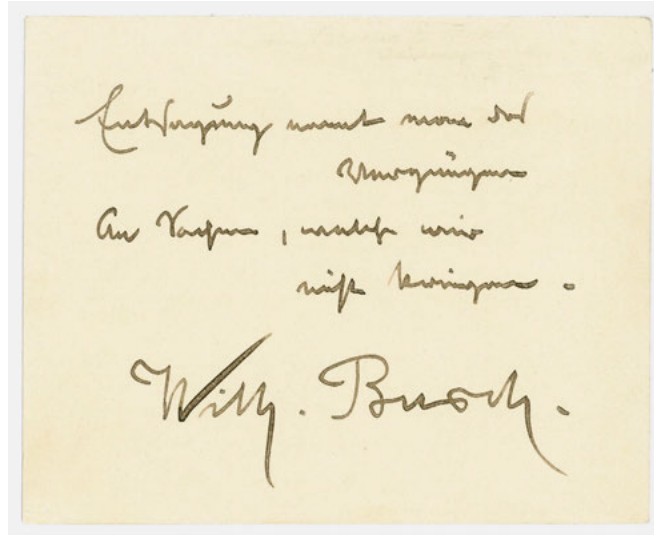 Entsagung nennt man das
Vergnügen
An Sachen, welche wir
nicht kriegen.
Wilh. Busch.